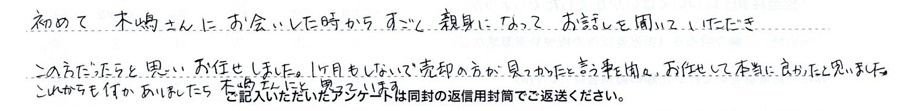 初めて 木嶋さんにお会いした時からすごく親身になってお話しを聞いていただき
この方だったらと思いお任せしました。1ヶ月もしないで売却の方が見つかったと言う事を聞き、お任せして本当に良かったと思いました。
これからも何かありましたら木嶋さんにと思っています。
ご記入いただいたアンケートは同封の返信用封筒でご返送ください。